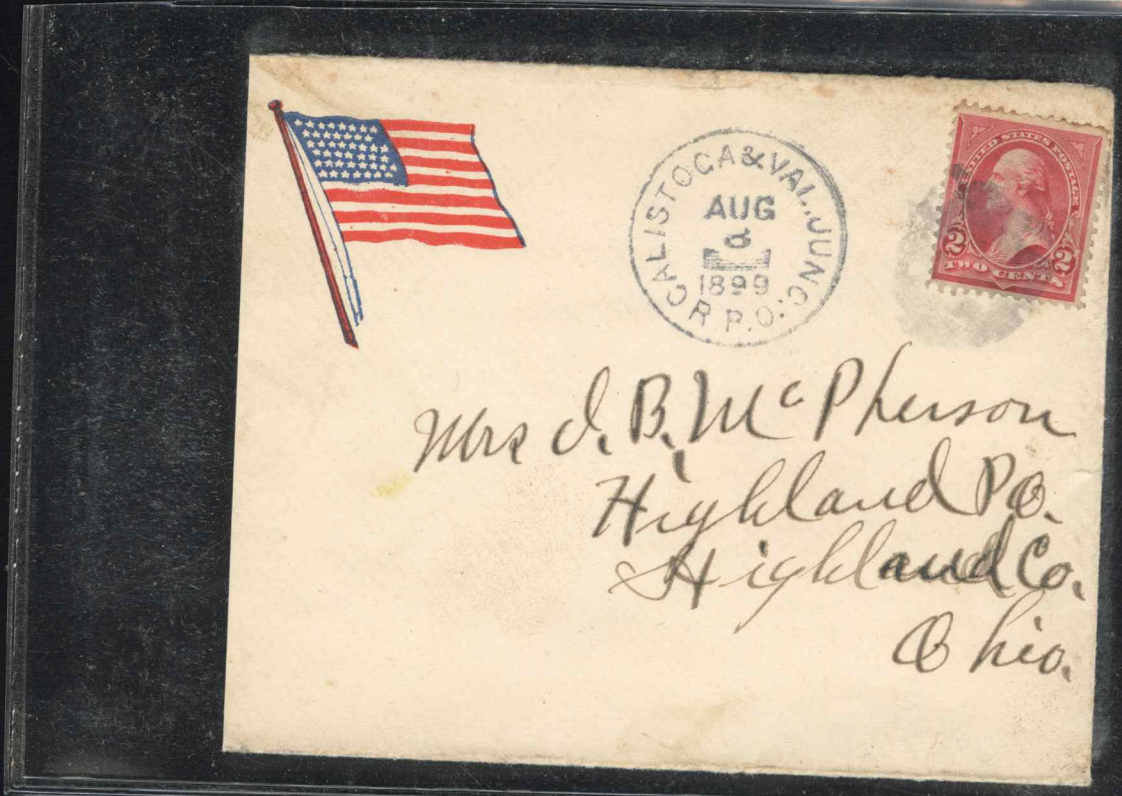 CALISTOGA & VAL. JUNC.
AUG
8
1899
R.P.O.
UNITED STATES POSTAGE
2 2
TWO CENTS
Mrs J. B. McPherson
Highland P.O.
Highland Co.
Ohio.